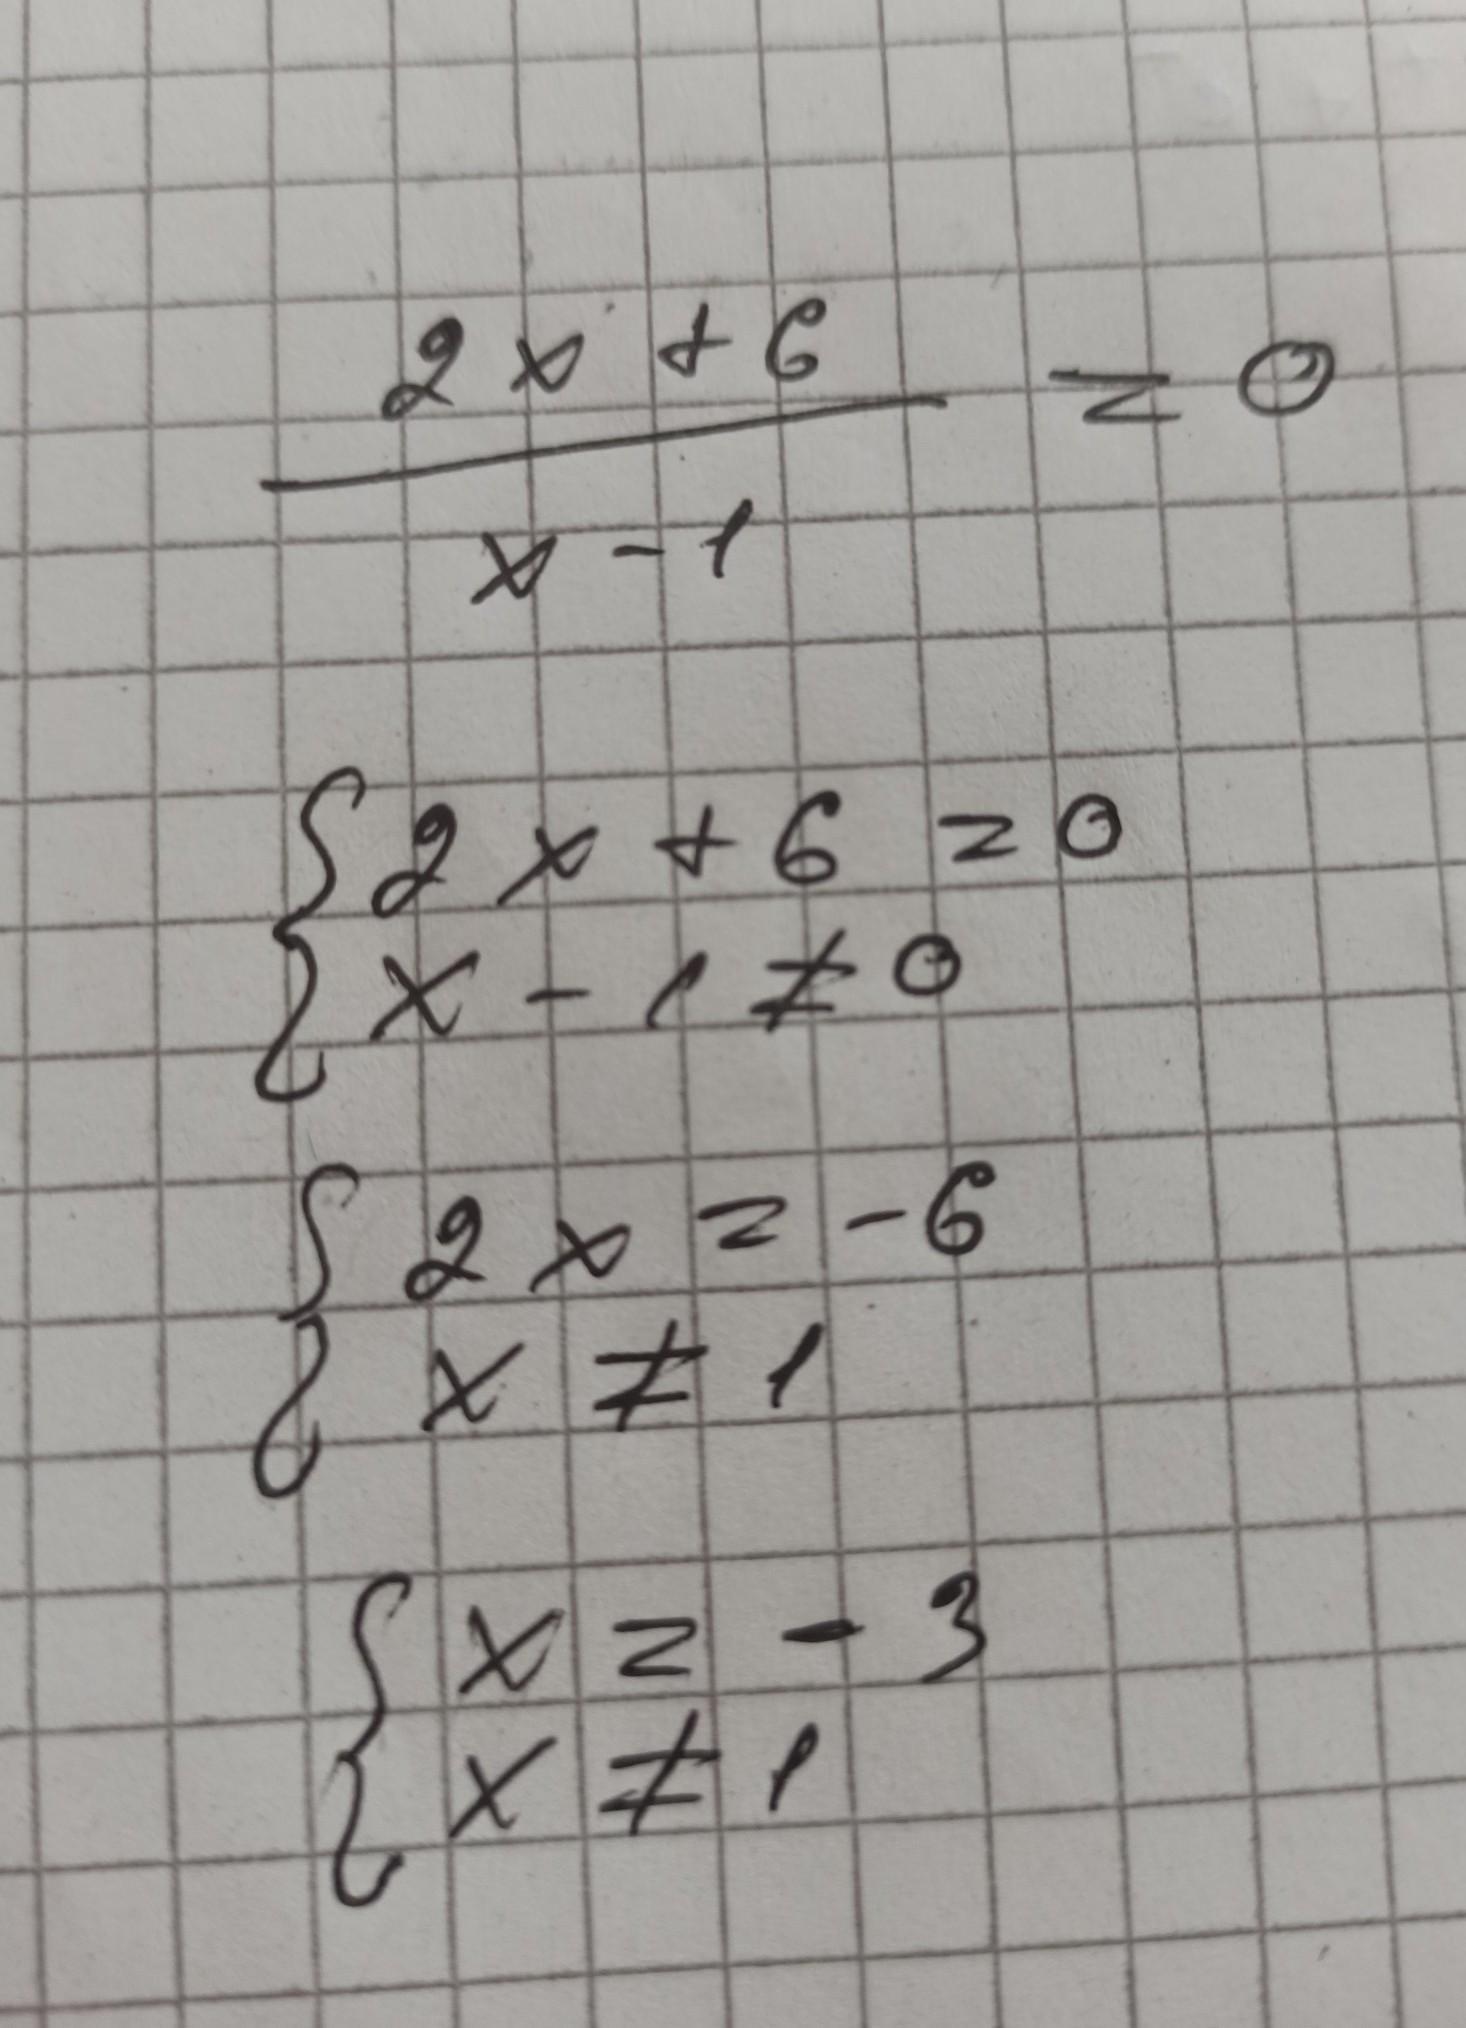 2x + 6 = 0
x - 1
2x + 6 = 0
x - 1 ≠ 0
2x = -6
x ≠ 1
x = -3
x ≠ 1